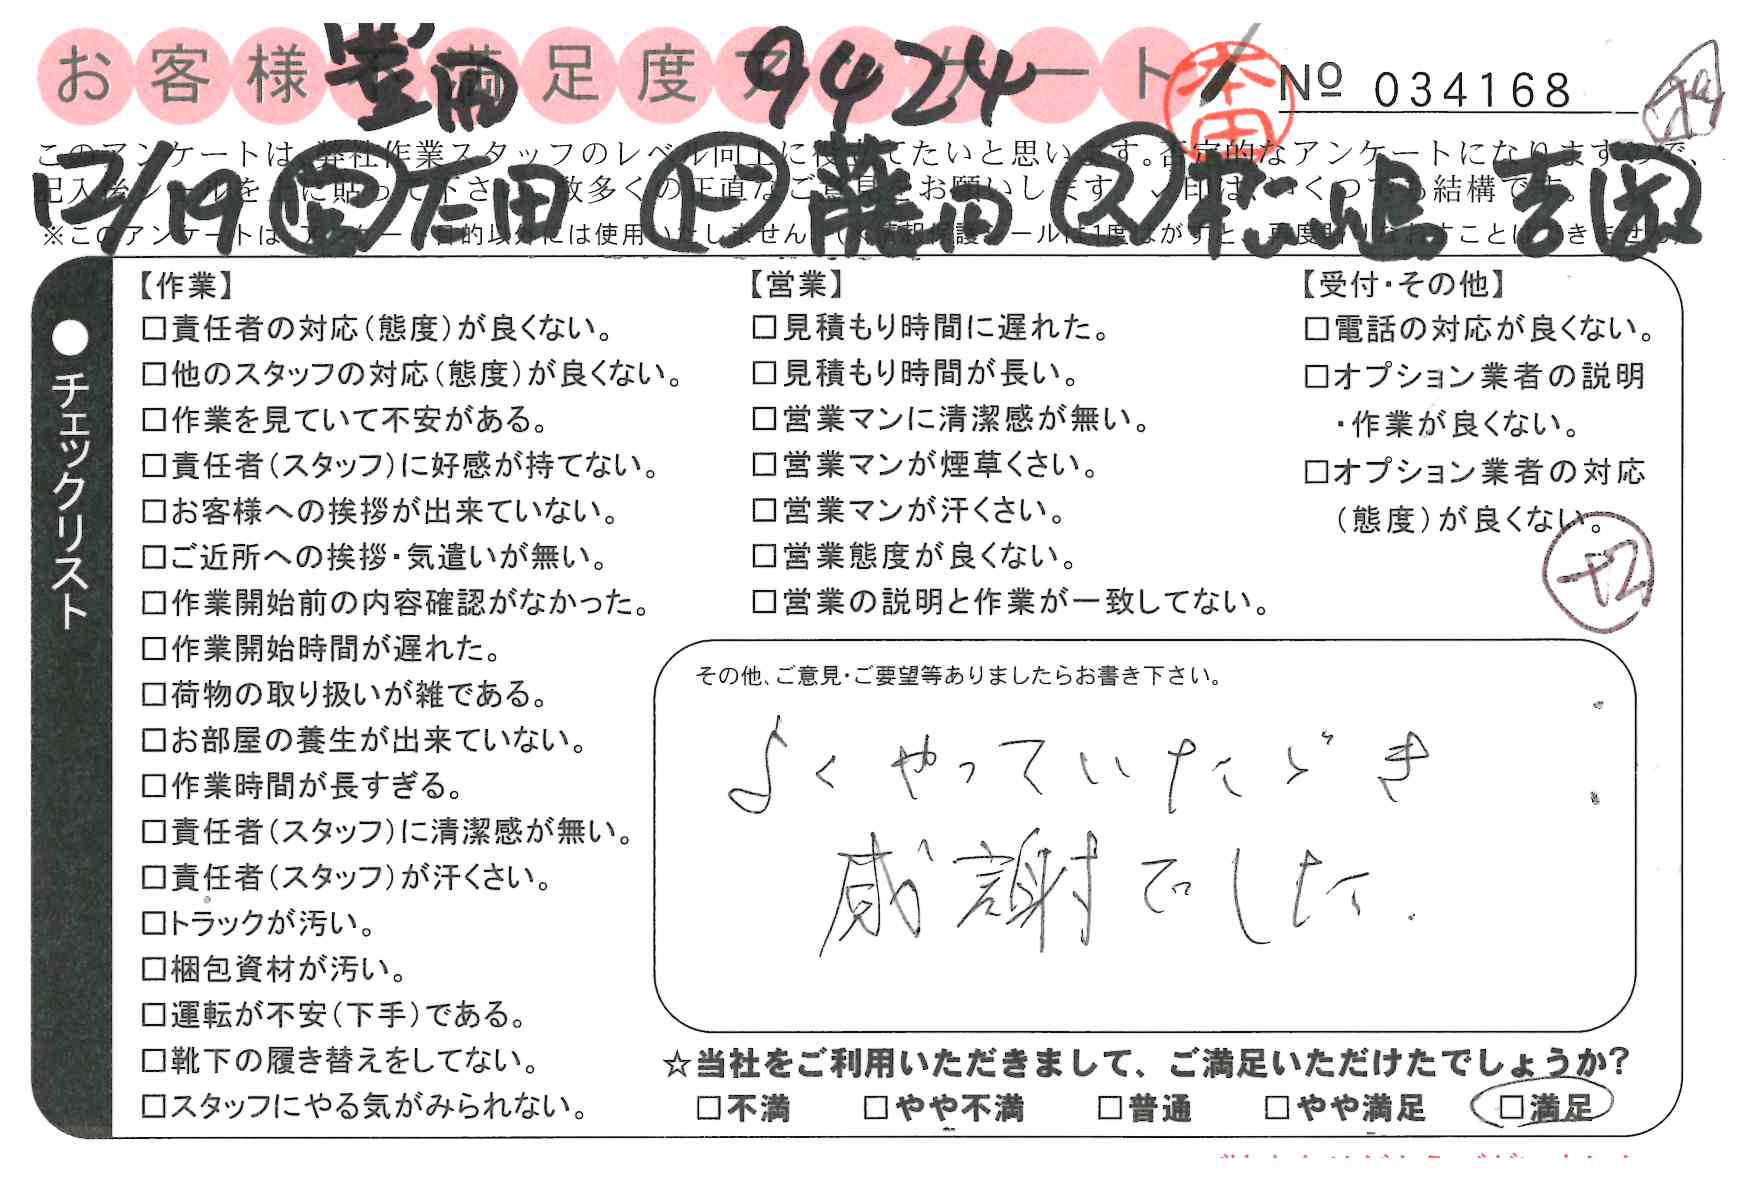 お客様満足度アンケート
豊雨 9424 本田 № 034168
このアンケートは、弊社作業スタッフのレベル向上に役立てたいと思います。否定的なアンケートになりますので、
記入後シールを上に貼って下さい。数多くの正直なご意見をお願いします。✓印は、いくつでも結構です。
12/19 左田 ド 藤田 ス 松嶋 吉
●チェックリスト
【作業】
□責任者の対応(態度)が良くない。
□他のスタッフの対応(態度)が良くない。
□作業を見ていて不安がある。
□責任者(スタッフ)に好感が持てない。
□お客様への挨拶が出来ていない。
□ご近所への挨拶・気遣いが無い。
□作業開始前の内容確認がなかった。
□作業開始時間が遅れた。
□荷物の取り扱いが雑である。
□お部屋の養生が出来ていない。
□作業時間が長すぎる。
□責任者(スタッフ)に清潔感が無い。
□責任者(スタッフ)が汗くさい。
□トラックが汚い。
□梱包資材が汚い。
□運転が不安(下手)である。
□靴下の履き替えをしてない。
□スタッフにやる気がみられない。
【営業】
□見積もり時間に遅れた。
□見積もり時間が長い。
□営業マンに清潔感が無い。
□営業マンが煙草くさい。
□営業マンが汗くさい。
□営業態度が良くない。
□営業の説明と作業が一致してない。
【受付・その他】
□電話の対応が良くない。
□オプション業者の説明
・作業が良くない。
□オプション業者の対応
(態度)が良くない。
その他、ご意見・ご要望等ありましたらお書き下さい。
よくやっていただき
感謝でした.
☆当社をご利用いただきまして、ご満足いただけたでしょうか?
□不満 □やや不満 □普通 □やや満足 □満足